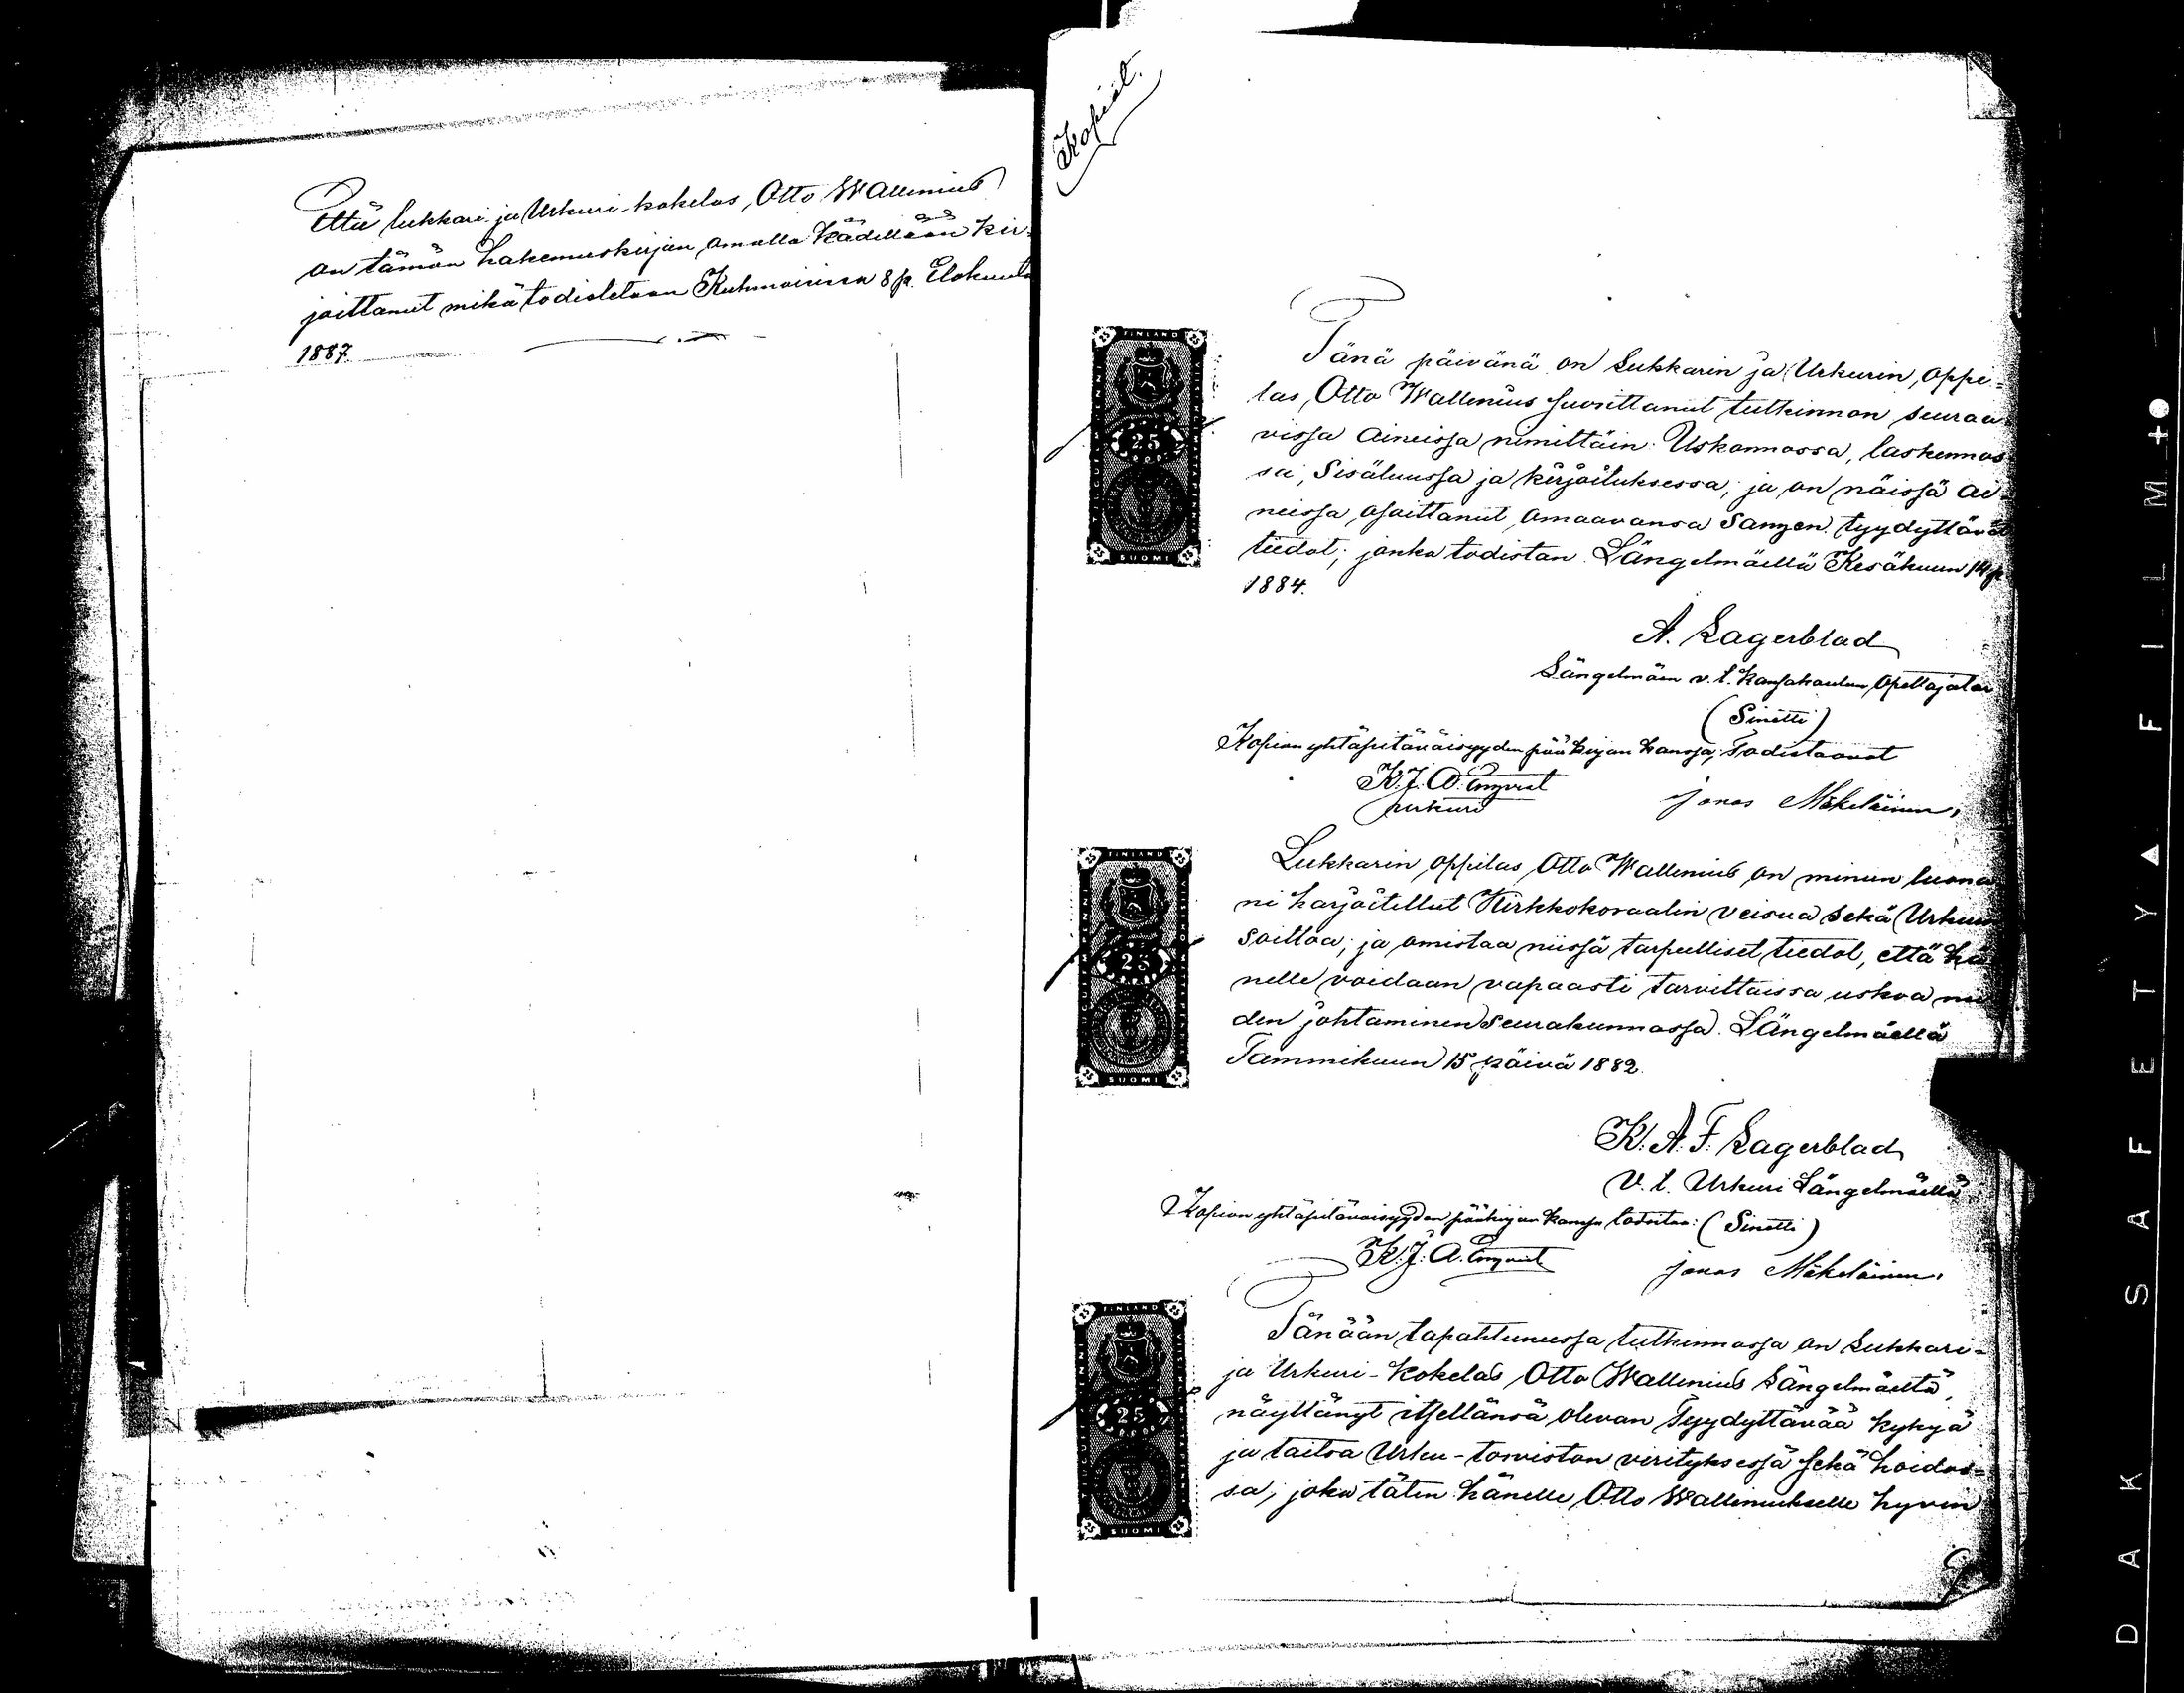 Että lukkari ja Urkuri-kokelas, Otto Wallenius
on tämän hakemuskirjan omalla kädellään kir-
joittanut mikä todistetaan Kuhmoisissa 8 p. Elokuuta
1887.
Kopiat.
Tänä päivänä on Lukkarin ja Urkurin, oppi-
las, Otto Wallenius suorittanut tutkinnon seuraa-
vissa aineissa nimittäin: Uskonnossa, laskennos
sa, Sisäluussa ja kirjoituksessa; ja on näissä ai-
neissa osoittanut omaavansa sangen tyydyttävät
tiedot; jonka todistan Längelmäellä Kesäkuun 14 p
1884.
A. Lagerblad
Längelmäen v. t. kansakoulun Opettajatar
(Sinetti)
Kopian yhtäpitäväisyyden pääkirjan kanssa, Todistaavat
K. J. A. Engvist
urkuri
Jonas Mäkeläinen,
FINLAND
25
SUOMI
Lukkarin oppilas Otto Wallenius on minun luona
ni harjoitellut Kirkkokoraalin veisua sekä Urkun
soittoa; ja omistaa niissä tarpeelliset tiedot, että hä
nelle voidaan vapaasti tarvittaissa uskoa nii
den johtaminen seurakunnassa. Längelmäellä
Tammikuun 15 päivä 1882.
K. A. F. Lagerblad
V. t. Urkuri Längelmäellä
Kopian yhtäpitäväisyyden pääkirjan kanssa todistaa: (Sinetti)
K. J. A. Engvist
Jonas Mäkeläinen,
FINLAND
25
SUOMI
Tänään tapahtuneessa tutkinnossa on Lukkari-
ja Urkuri-kokelas Otto Wallenius Längelmäeltä,
näyttänyt itsellänsä olevan Tyydyttävää kykyä
ja taitoa Urku-torviston virityksessä sekä hoidos-
sa; joka täten hänelle Otto Walleniukselle hyvin
FINLAND
25
SUOMI
DAK SAFETY ▲ FILM